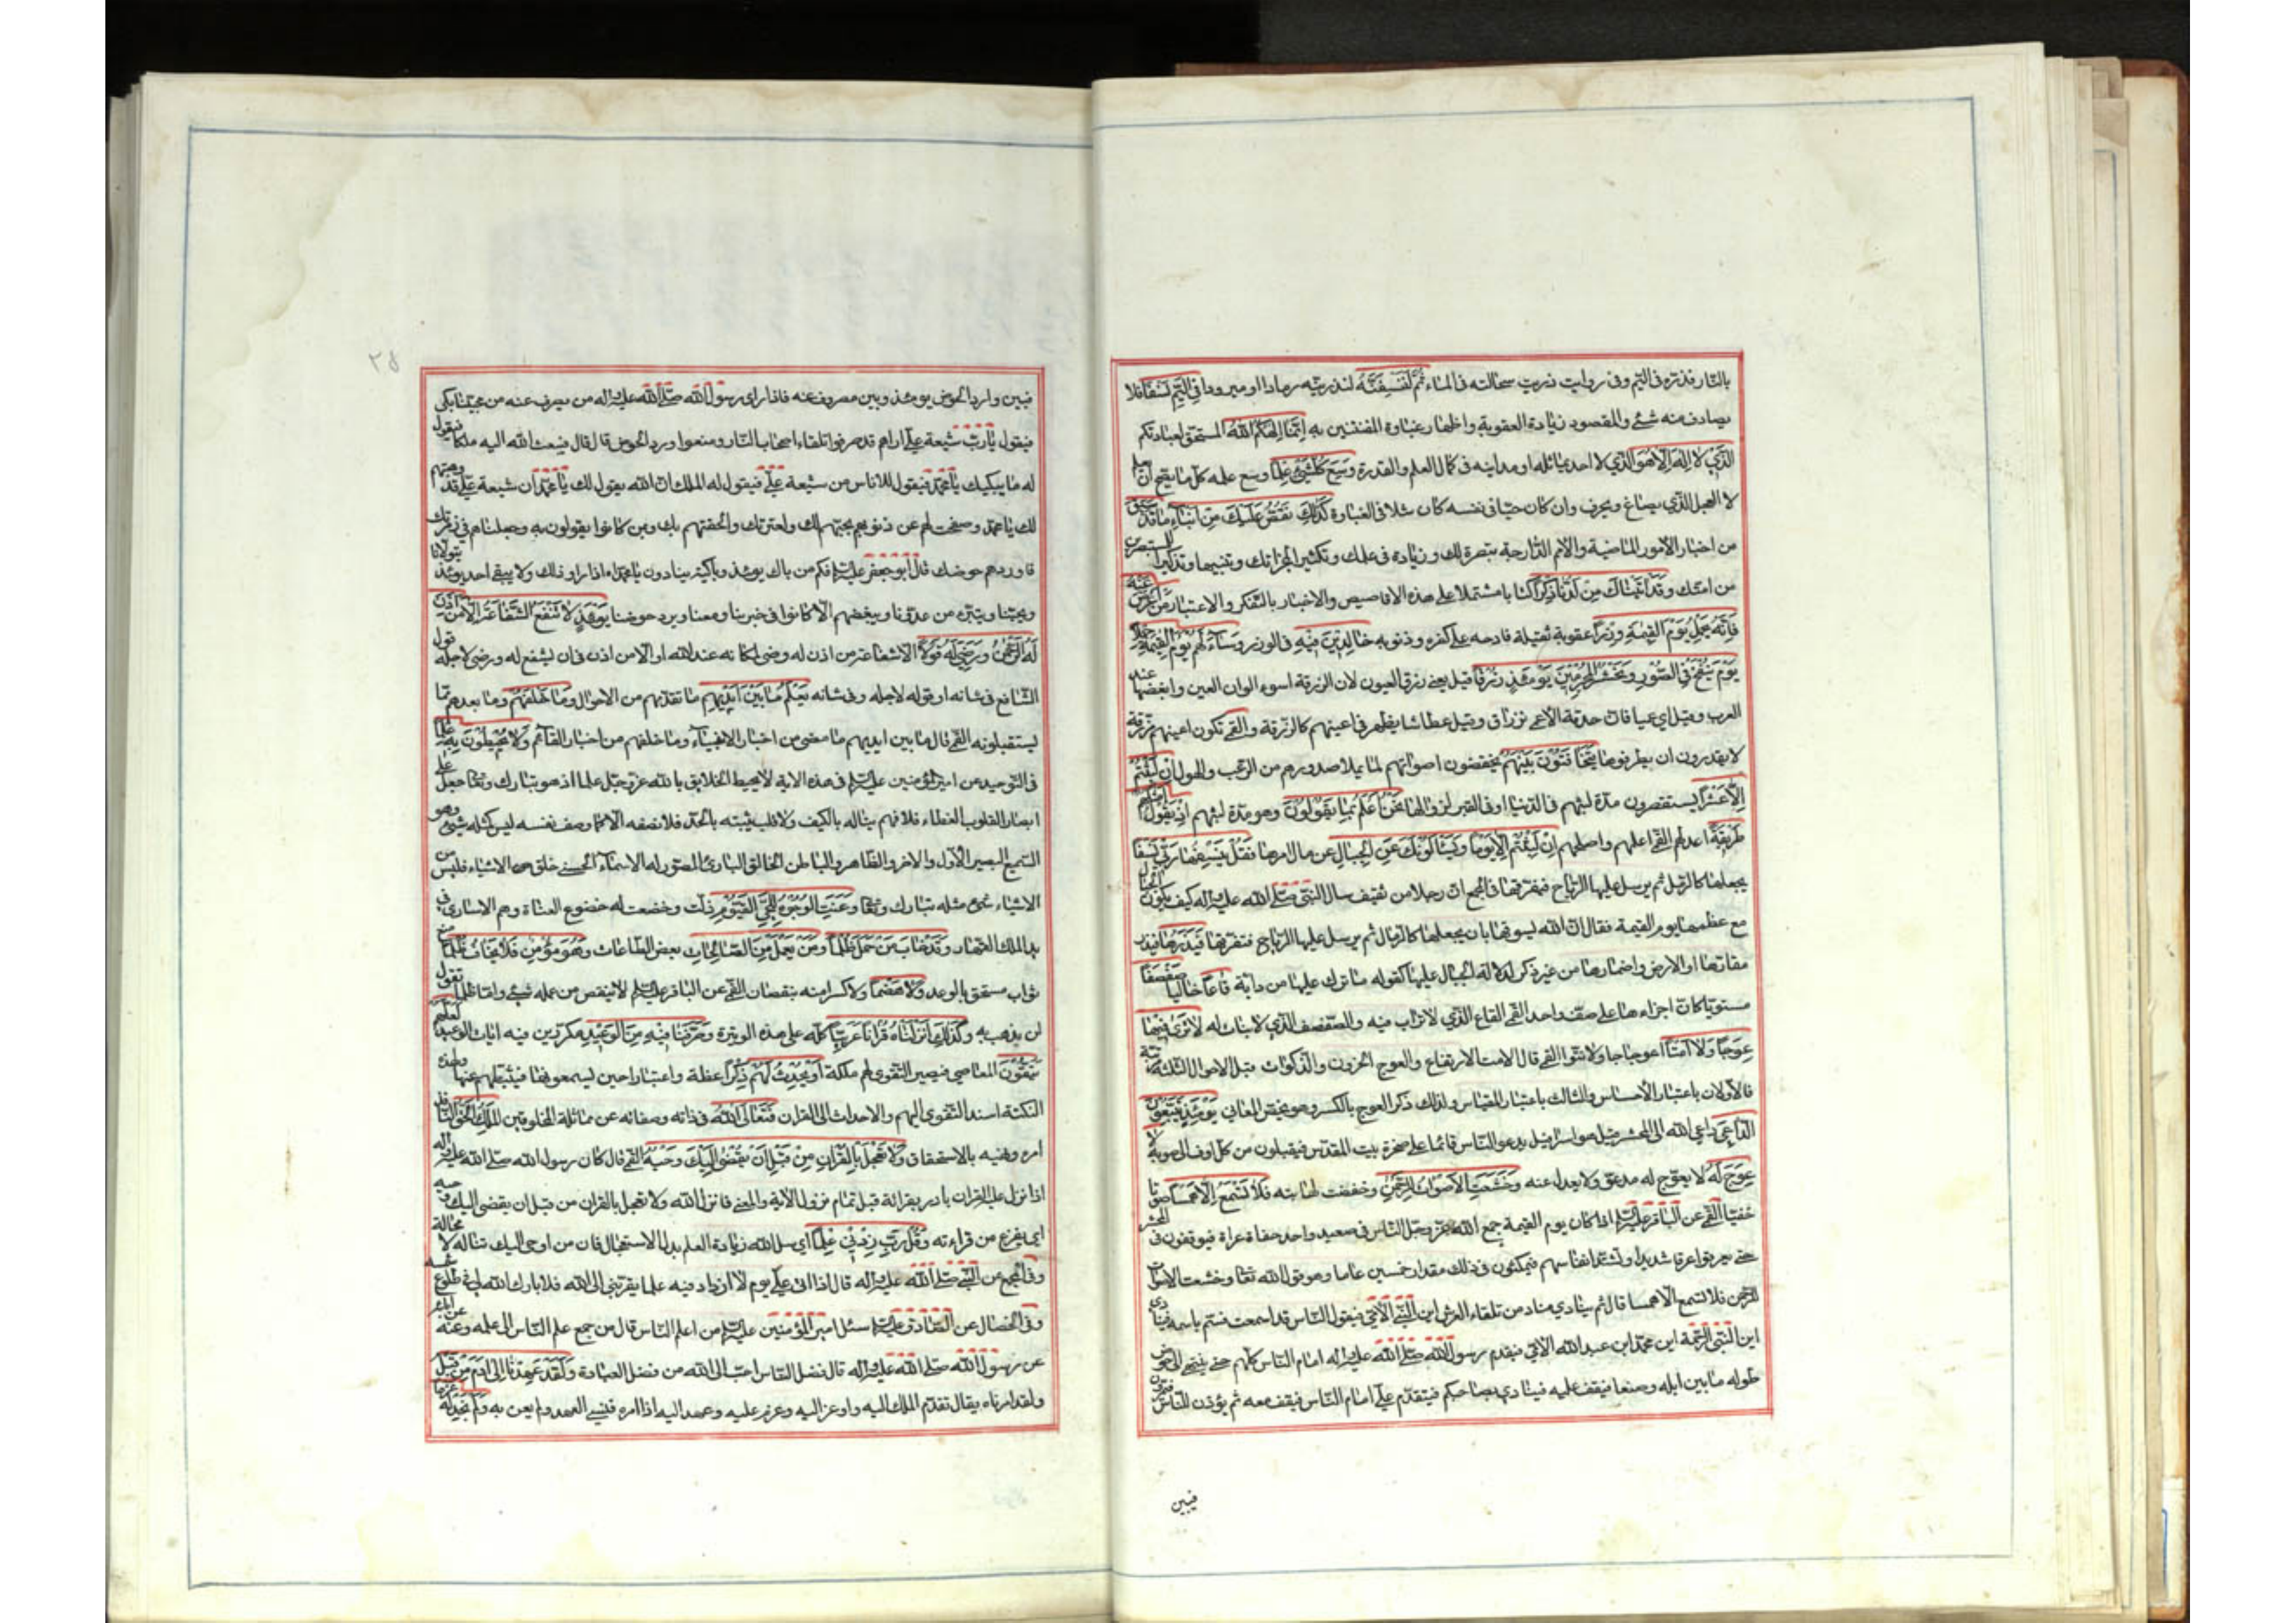 بالنار فذرّه في اليم وفي رواية ذريت سحالته في الماء ثُمَّ لَنَنْسِفَنَّهُ لنذرينه رمادا او مبرودا فِي الْيَمِّ نَسْفًا فلا
يصادف منه شئ والمقصود زيادة العقوبة واظهار غباوة المفتتنين به إِنَّمَا إِلٰهُكُمُ اللّٰهُ المستحق لعبادتكم
الَّذِي لَا إِلٰهَ إِلَّا هُوَ الذي لا احد يماثله او يدانيه في كمال العلم والقدرة وَسِعَ كُلَّ شَيْءٍ عِلْمًا وسع علمه كل ما يصح ان يعلم
لا العجل الذي يصاغ ويحرق وان كان حيا في نفسه كان مثلا في الغباوة كَذٰلِكَ نَقُصُّ عَلَيْكَ مِنْ أَنْبَاءِ مَا قَدْ سَبَقَ
من اخبار الأمور الماضية والامم الدارجة تبصرة لك وزيادة في علمك وتكثيرا لمعجزاتك وتنبيها وتذكيرا للمستبصرين
من امتك وَقَدْ آتَيْنَاكَ مِنْ لَدُنَّا ذِكْرًا كتابا مشتملا على هذه الاقاصيص والاخبار بالتفكر والاعتبار مَنْ أَعْرَضَ عَنْهُ
فَإِنَّهُ يَحْمِلُ يَوْمَ الْقِيٰمَةِ وِزْرًا عقوبة ثقيلة فادحه على كفره وذنوبه خَالِدِينَ فِيهِ في الوزر وَسَاءَ لَهُمْ يَوْمَ الْقِيٰمَةِ حِمْلًا
يَوْمَ يُنْفَخُ فِي الصُّورِ وَنَحْشُرُ الْمُجْرِمِينَ يَوْمَئِذٍ زُرْقًا قيل يعني زرق العيون لان الزرقة اسوء الوان العين وابغضها عند
العرب وقيل اي عميا فان حدقة الأعمى تزراق وقيل عطاشا يظهر في اعينهم كالزرقة والقمي تكون اعينهم مزرقة
لا يقدرون ان يطرفوها يَتَخَافَتُونَ بَيْنَهُمْ يخفضون اصواتهم لما يملا صدورهم من الرعب والهول إِنْ لَبِثْتُمْ
إِلَّا عَشْرًا يستقصرون مدة لبثهم في الدنيا او في القبر لزوالها نَحْنُ أَعْلَمُ بِمَا يَقُولُونَ وهو مدة لبثهم إِذْ يَقُولُ أَمْثَلُهُمْ
طَرِيقَةً اعدلهم القمي اعلمهم واصلحهم إِنْ لَبِثْتُمْ إِلَّا يَوْمًا وَيَسْأَلُونَكَ عَنِ الْجِبَالِ عن مال امرها فَقُلْ يَنْسِفُهَا رَبِّي نَسْفًا
يجعلها كالرمل ثم يرسل عليها الرياح فتفرقها في المجمع ان رجلا من ثقيف سال النبي صلى الله عليه واله كيف يكون الجبال
مع عظمها يوم القيمة فقال ان الله يسوقها بان يجعلها كالرمال ثم يرسل عليها الرياح فتفرقها فَيَذَرُهَا فيذر
مقارّها او الارض واضمارها من غير ذكر لدلالة الجبال عليها كقوله ما ترك عليها من دابة قَاعًا خاليا صَفْصَفًا
مستويا كان اجزاءها على صف واحد القمي القاع الذي لا تراب فيه والصفصف الذي لا نبات له لَا تَرَىٰ فِيهَا
عِوَجًا وَلَا أَمْتًا اعوجاجا ولا نتوا القمي قال الامت الارتفاع والعوج الحزون والذكوات قيل الاحوال الثلثة مترتبة
فالاولان باعتبار الاحساس والثالث باعتبار المقياس ولذلك ذكر العوج بالكسر وهو يخص المعاني يَوْمَئِذٍ يَتَّبِعُونَ
الدَّاعِيَ داعي الله الى المحشر قيل هو اسرافيل يدعو الناس قائما على صخرة بيت المقدس فيقبلون من كل اوب الى صوبه لَا
عِوَجَ لَهُ لا يعوج له مدعو ولا يعدل عنه وَخَشَعَتِ الْأَصْوَاتُ لِلرَّحْمٰنِ وخفضت لمهابته فَلَا تَسْمَعُ إِلَّا هَمْسًا صوتا
خفيا القمي عن الباقر عليه السلام اذا كان يوم القيمة جمع الله عز وجل الناس في صعيد واحد حفاة عراة فيوقفون في المحشر
حتى يعرقوا عرقا شديدا وتشتد انفاسهم فيمكثون في ذلك مقدار خمسين عاما وهو قول الله تعالى وخشعت الاصوات
للرحمن فلا تسمع الا همسا قال ثم ينادي مناد من تلقاء العرش اين النبي الأمي فيقول الناس قد اسمعت فسم باسمه فينادي
اين النبي الرحمة اين محمد ابن عبدالله الأمي فيقدم رسول الله صلى الله عليه واله امام الناس كلهم حتى ينتهي الى حوض
طوله ما بين ايله وصنعا فيقف عليه فينادي بصاحبكم فيتقدم علي امام الناس فيقف معه ثم يؤذن للناس فيمرون
فيبين
٢٥
فبين وارد الحوض يومئذ وبين مصروف عنه فاذا راى رسول الله صلى الله عليه واله من يصرف عنه من محبينا بكى
فيقول يا رب شيعة علي اراهم قد صرفوا تلقاء اصحاب النار ومنعوا ورد الحوض قال قال فيبعث الله اليه ملكا فيقول
له ما يبكيك يا محمد فيقول لاناس من شيعة علي فيقول له الملك ان الله يقول لك يا محمد ان شيعة علي قد وهبتهم
لك يا محمد وصفحت لهم عن ذنوبهم بحبهم لك ولعترتك والحقتهم بك وبمن كانوا يقولون به وجعلناهم في زمرتك
فاوردهم حوضك قال ابو جعفر عليه السلام فكم من باك يومئذ وباكية ينادون يا محمداه اذا راوا ذلك ولا يبقى احد يومئذ يتولانا
ويحبنا ويتبرء من عدونا ويبغضهم الا كانوا في خبرنا ومعنا ويرد حوضنا يَوْمَئِذٍ لَا تَنْفَعُ الشَّفَاعَةُ إِلَّا مَنْ أَذِنَ
لَهُ الرَّحْمٰنُ وَرَضِيَ لَهُ قَوْلًا الا شفاعة من اذن له ورضي لمكانه عند الله او الا من اذن في ان يشفع له ورضي لاجله قول
الشافع في شانه او قوله لاجله وفي شانه يَعْلَمُ مَا بَيْنَ أَيْدِيهِمْ ما تقدمهم من الاحوال وَمَا خَلْفَهُمْ وما بعدهم مما
يستقبلونه القمي قال ما بين ايديهم ما مضى من اخبار الانبياء وما خلفهم من اخبار القائم وَلَا يُحِيطُونَ بِهِ عِلْمًا
في التوحيد عن امير المؤمنين عليه السلام في هذه الاية لا يحيط الخلايق بالله عز وجل علما اذ هو تبارك وتعالى جعل على
ابصار القلوب الغطاء فلا فهم يناله بالكيف ولا قلب يثبته بالحد فلا نصفه الا كما وصف نفسه ليس كمثله شئ وهو
السميع البصير الاول والاخر والظاهر والباطن الخالق البارئ المصور له الاسماء الحسنى خلق الاشياء فليس من
الاشياء شئ مثله تبارك وتعالى وَعَنَتِ الْوُجُوهُ لِلْحَيِّ الْقَيُّومِ ذلت وخضعت له خضوع العناة وهم الاسارى في
يد الملك القهار وَقَدْ خَابَ مَنْ حَمَلَ ظُلْمًا وَمَنْ يَعْمَلْ مِنَ الصَّالِحَاتِ بعض الطاعات وَهُوَ مُؤْمِنٌ فَلَا يَخَافُ ظُلْمًا منع
ثواب مستحق بالوعد وَلَا هَضْمًا ولا كسرا منه بنقصان القمي عن الباقر عليه السلام لا ينقص من عمله شئ واما ظلما تقول
لن يذهب به وَكَذٰلِكَ أَنْزَلْنَاهُ قُرْآنًا عَرَبِيًّا كله على هذه الوتيرة وَصَرَّفْنَا فِيهِ مِنَ الْوَعِيدِ مكررين فيه ايات الوعيد لَعَلَّهُمْ
يَتَّقُونَ المعاصي فيصير التقوى لهم ملكة أَوْ يُحْدِثُ لَهُمْ ذِكْرًا عظة واعتبارا حين يسمعونها فيثبطهم عنها ولهذه
النكتة اسند التقوى اليهم والاحداث الى القران فَتَعَالَى اللّٰهُ في ذاته وصفاته عن مماثلة المخلوقين الْمَلِكُ الْحَقُّ النافذ
امره ونهيه بالاستحقاق وَلَا تَعْجَلْ بِالْقُرْآنِ مِنْ قَبْلِ أَنْ يُقْضَىٰ إِلَيْكَ وَحْيُهُ القمي قال كان رسول الله صلى الله عليه واله
اذا نزل عليه القران بادر بقرائة قبل تمام نزول الاية والمعنى فانزل الله ولا تعجل بالقران من قبل ان يقضى اليك وحيه
اي يفرغ من قراءته وَقُلْ رَبِّ زِدْنِي عِلْمًا اي سل الله زيادة العلم بدل الاستعجال فان من اوحي اليك تناله لا محالة
وفي المجمع عن النبي صلى الله عليه واله قال اذا اتى علي يوم لا ازداد فيه علما يقربني الى الله فلا بارك الله لي في طلوع شمسه
وفي الخصال عن الصادق عليه السلام سئل امير المؤمنين عليه السلام من اعلم الناس قال من جمع علم الناس الى علمه وعنه عن ابائه
عن رسول الله صلى الله عليه واله قال فضل العلم احب الى الله من فضل العبادة وَلَقَدْ عَهِدْنَا إِلَىٰ آدَمَ مِنْ قَبْلُ
ولقد امرناه يقال تقدم الملك اليه واوعز اليه وعزم عليه وعهد اليه اذا امره فَنَسِيَ العهد ولم يعن به وَلَمْ نَجِدْ لَهُ عَزْمًا